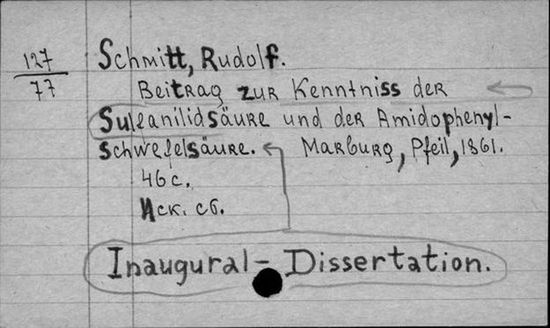 127
77
Schmitt, Rudolf.
Beitrag zur Kenntniss der
Sulfanilidsäure und der Amidophenyl-
schwefelsäure. Marburg, Pfeil, 1861.
46 с.
Иск. сб.
Inaugural-Dissertation.